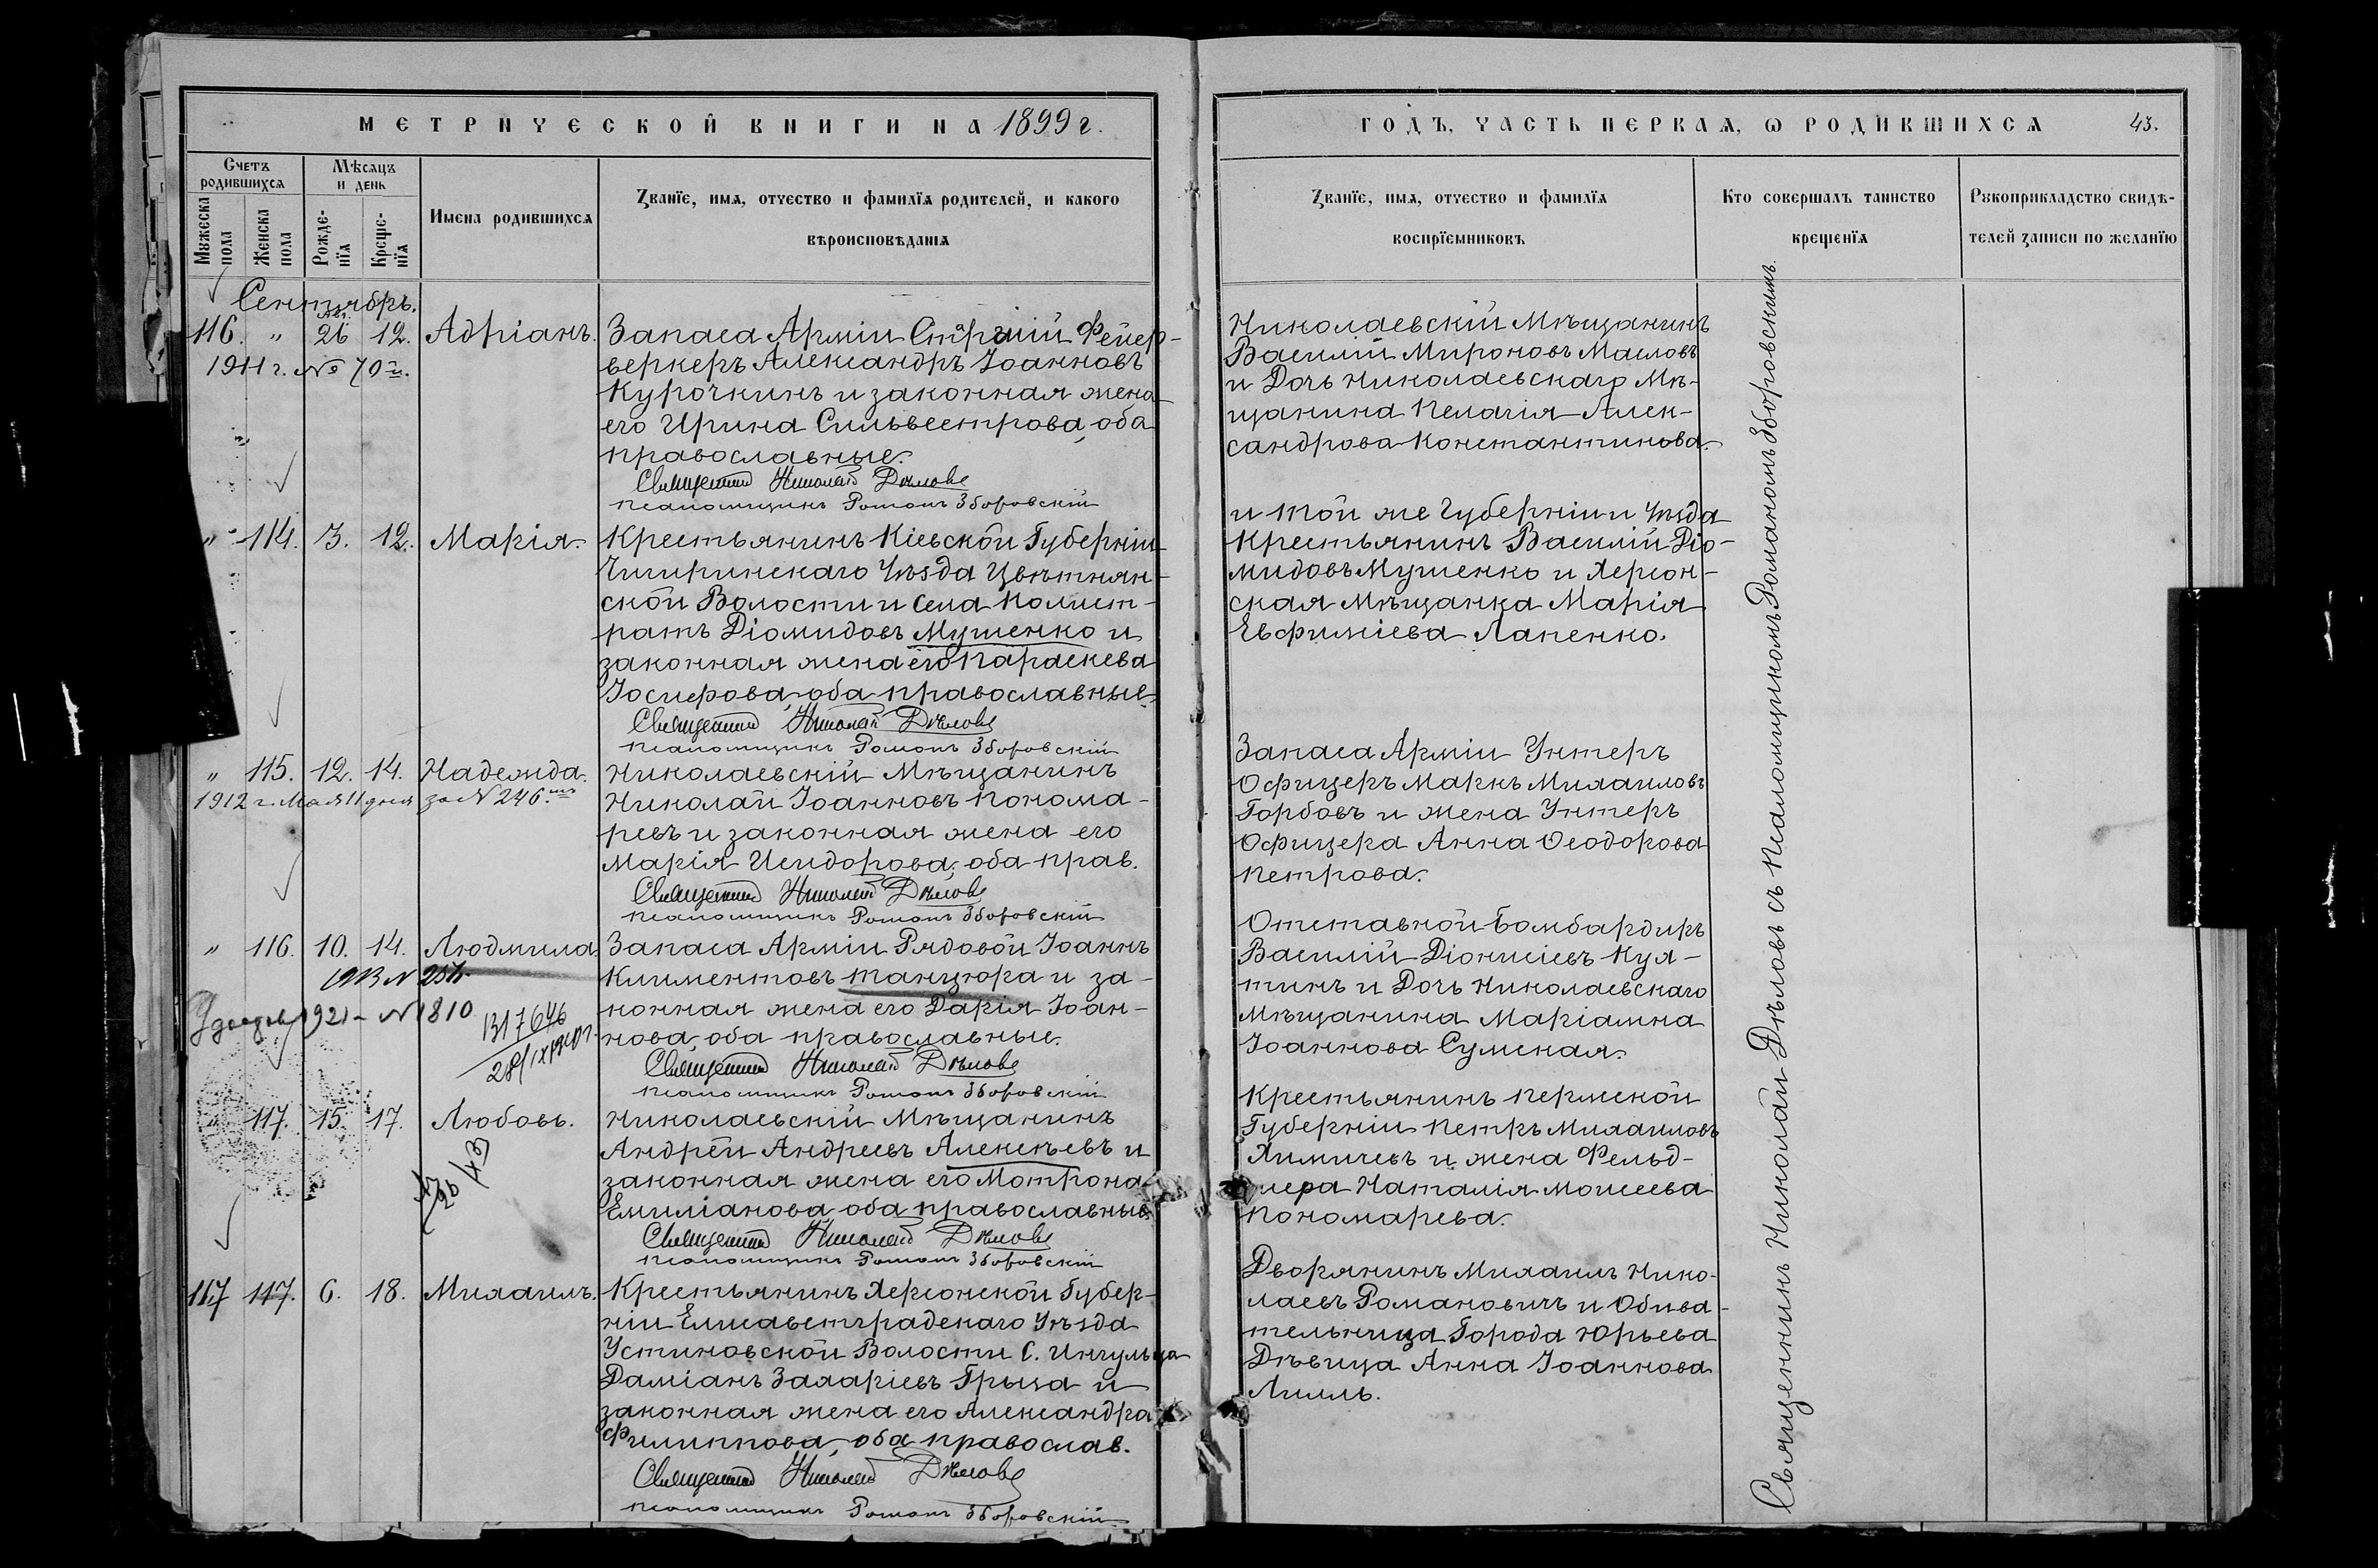 МЕТРИЧЕСКОЙ КНИГИ НА 1899 г.
Счетъ родившихся
Мѣсяцъ и день
Мужеска пола
Женска пола
Рожденїя
Крещенїя
Имена родившихся
Званїе, имя, отчество и фамилїя родителей, и какого
вѣроисповѣданїя
Сентябрь.
116. " 26 12. Адріанъ.
1911 г. № 70й.
Запаса Арміи Старшій Фейер-
веркеръ Александръ Іоанновъ
Курочкинъ и законная жена
его Ирина Сильвестрова, оба
православные.
Священникъ Николай Дѣловъ
Псаломщикъ Романъ Зборовскій
" 114. 3. 12. Марія.
Крестьянинъ Кіевской Губерніи
Чигиринскаго Уѣзда Цвѣтнян-
ской Волости и села Калист-
ратъ Діомидовъ Мушенко и
законная жена его Параскева
Іосифова, оба православные.
Священникъ Николай Дѣловъ
Псаломщикъ Романъ Зборовскій
" 115. 12. 14. Надежда.
1912 г. Мая 11 дня за № 246.
Николаевскій Мѣщанинъ
Николай Іоанновъ Понома-
ревъ и законная жена его
Марія Исидорова, оба прав.
Священникъ Николай Дѣловъ
Псаломщикъ Романъ Зборовскій
" 116. 10. 14. Людмила.
1921 - N 1810
317646
Запаса Арміи Рядовой Іоаннъ
Климентовъ Танцюра и за-
конная жена его Дарія Іоан-
нова, оба православные.
Священникъ Николай Дѣловъ
Псаломщикъ Романъ Зборовскій
" 117. 15. 17. Любовь.
Николаевскій Мѣщанинъ
Андрей Андреевъ Алексѣевъ и
законная жена его Мотрона
Емиліанова, оба православные.
Священникъ Николай Дѣловъ
Псаломщикъ Романъ Зборовскій
117 117. 6. 18. Михаилъ.
Крестьянинъ Херсонской Губер-
ніи Елисаветградскаго Уѣзда
Устиновской Волости С. Ингульца
Даміанъ Захаріевъ Грыца и
законная жена его Александра
Филиппова, оба православ.
Священникъ Николай Дѣловъ
Псаломщикъ Романъ Зборовскій
ГОДЪ, ЧАСТЬ ПЕРВАЯ, Ѡ РОДИВШИХСЯ 43.
Званїе, имя, отчество и фамилїя
воспрїемниковъ
Кто совершалъ таинство
крещенїя
Рукоприкладство свидѣ-
телей записи по желанїю
Николаевскій Мѣщанинъ
Василій Мироновъ Масловъ
и Дочь Николаевскаго Мѣ-
щанина Пелагія Алек-
сандрова Константинова.
и той же Губерніи и Уѣзда
Крестьянинъ Василій Діо-
мидовъ Мушенко и Херсон-
ская Мѣщанка Марія
Евфиміева Лапенко.
Запаса Арміи Унтеръ
Офицеръ Маркъ Михаиловъ
Горбовъ и жена Унтеръ
Офицера Анна Ѳеодорова
Петрова.
Отставной Бомбардиръ
Василій Діонисіевъ Кух-
тинъ и Дочь Николаевскаго
Мѣщанина Маріамна
Іоаннова Сумская.
Крестьянинъ Пермской
Губерніи Петръ Михаиловъ
Химичевъ и жена Фельд-
шера Наталія Моисеева
Пономарева.
Дворянинъ Михаилъ Нико-
лаевъ Романовичъ и Обыва-
тельница Города Юрьева
Дѣвица Анна Іоаннова
Лилль.
Священникъ Николай Дѣловъ съ Псаломщикомъ Романомъ Зборовскимъ.